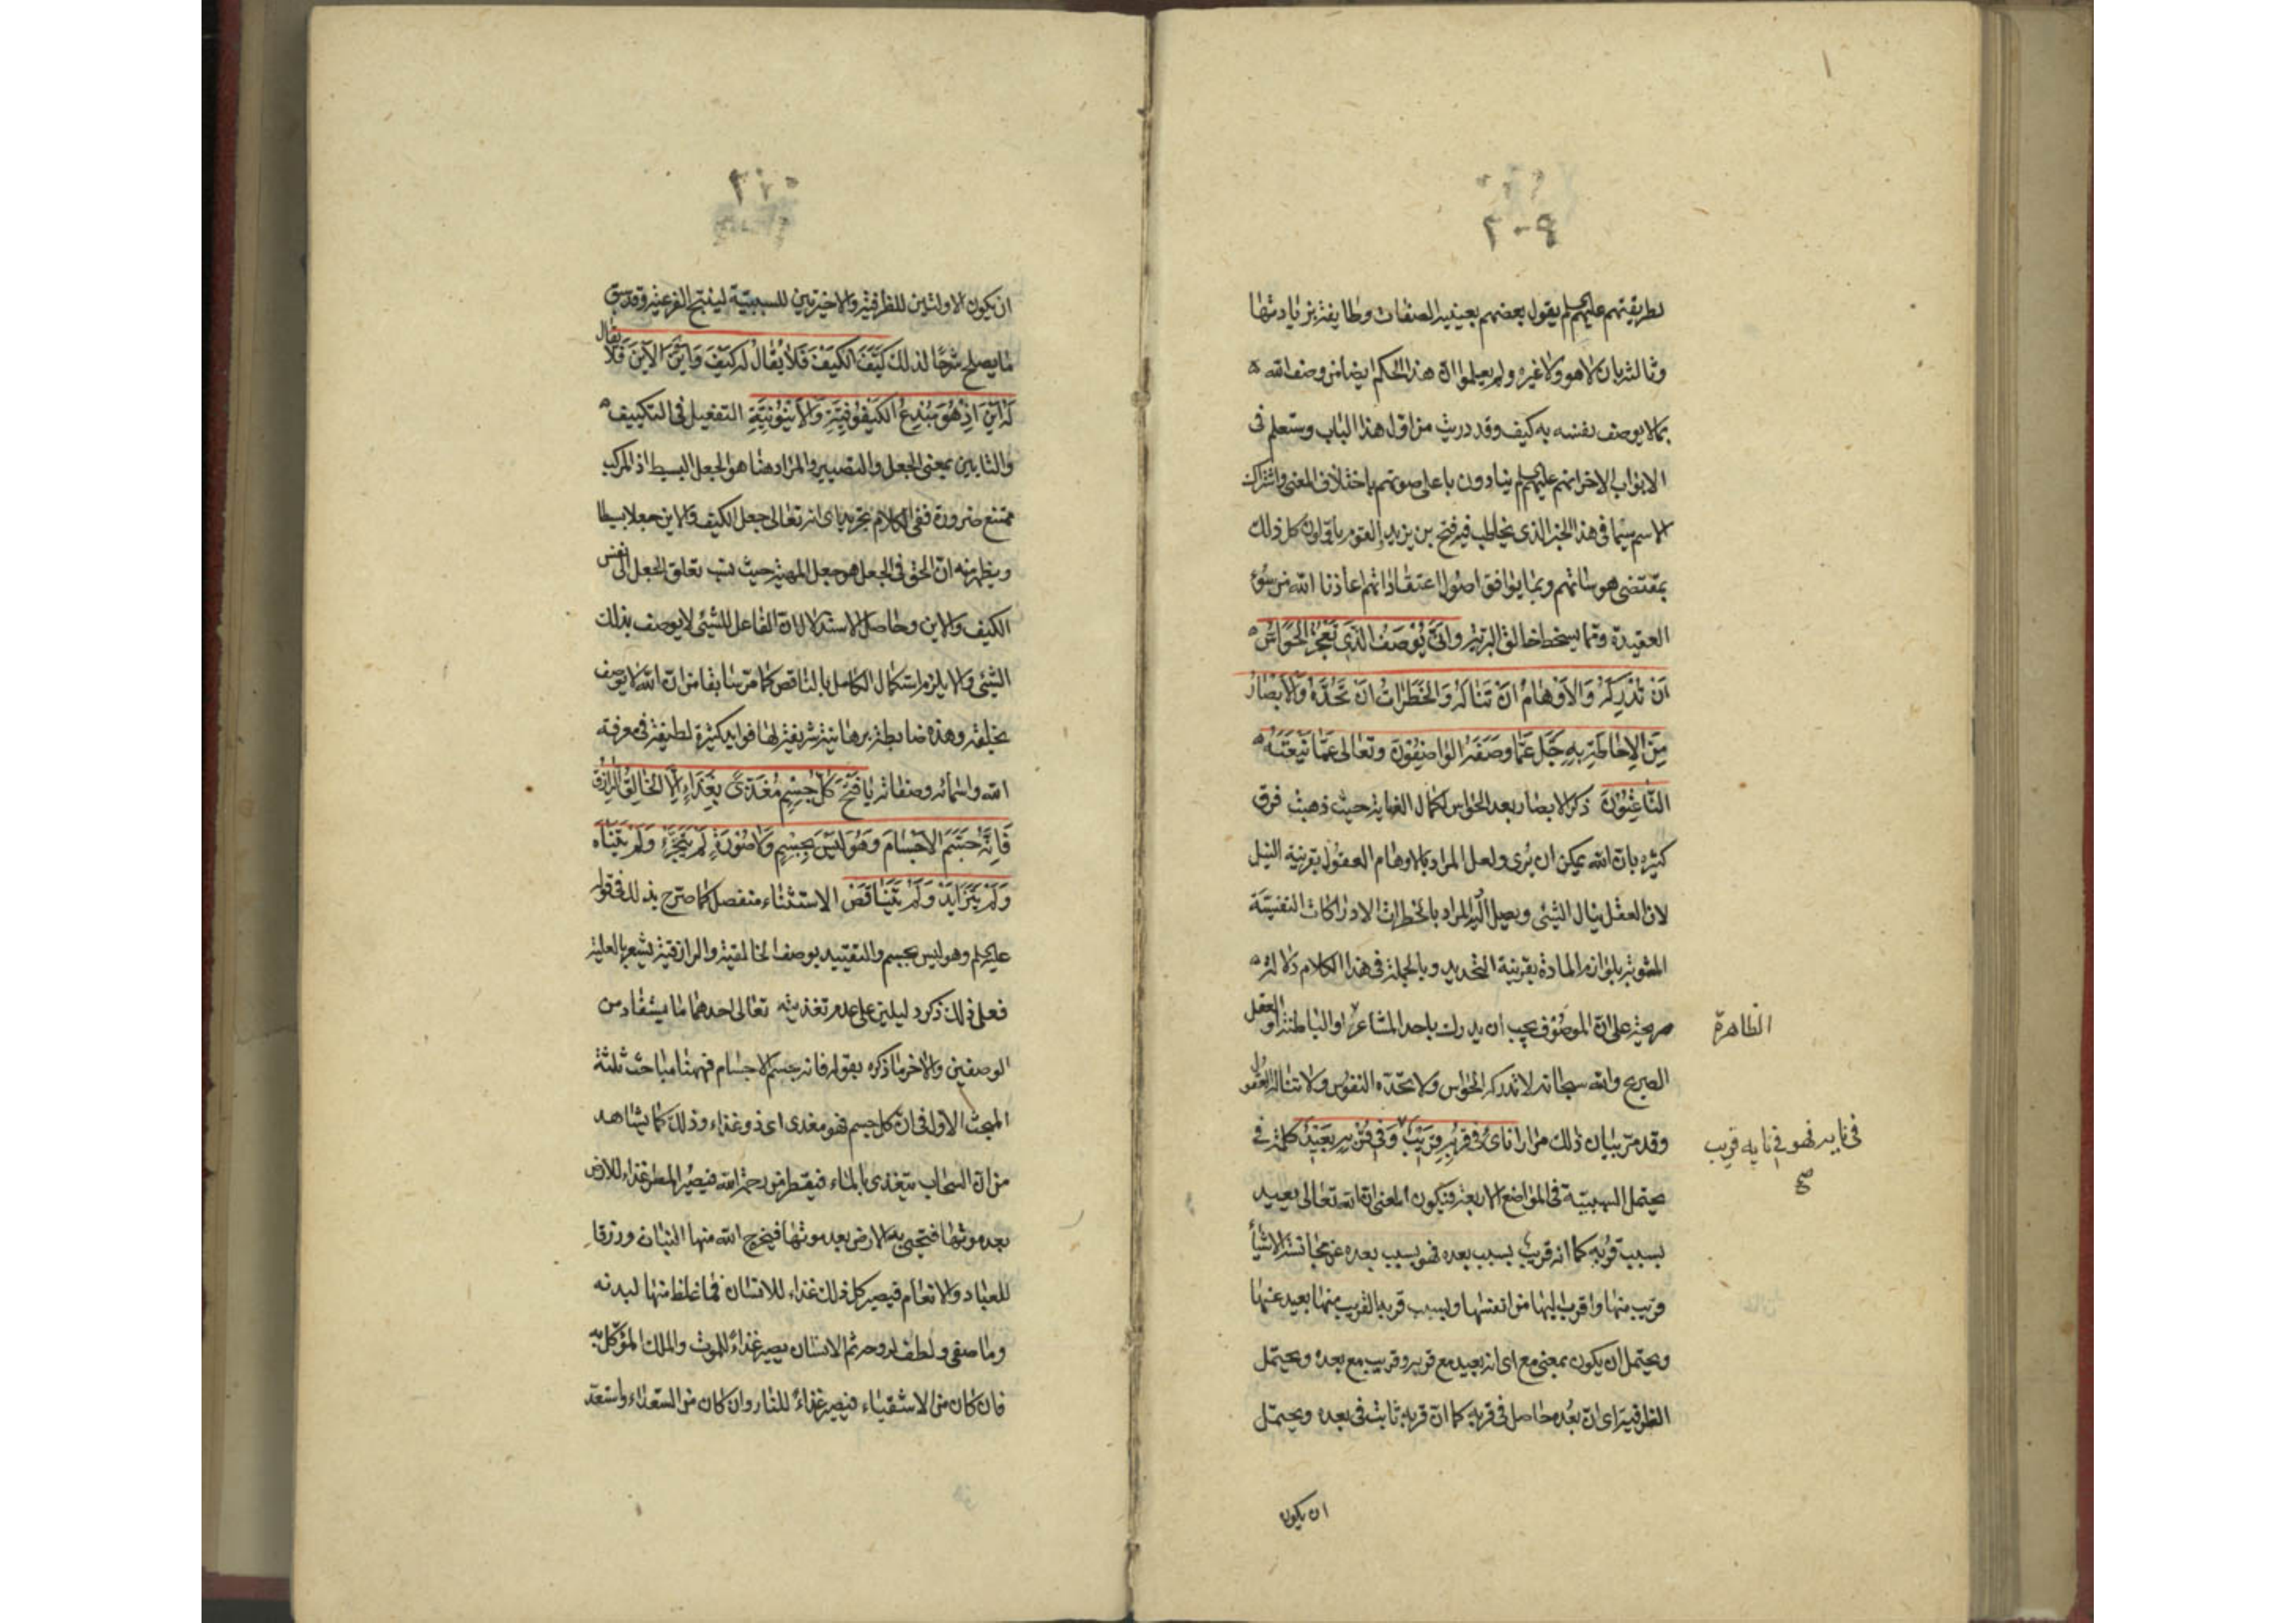 ٢٠٩
بطريقتهم عليهم السلام يقول بعضهم بعينية الصفات وطايفة بزيادتها
وثالثة بان لا هو ولا غيره ولم يعلموا ان هذا الحكم ايضا من وصف الله
بما لا يوصف نفسه به كيف وقد دريت من اول هذا الباب وستعلم فى
الابواب الاخر انهم عليهم السلام ينادون باعلى صوتهم باختلاف المعنى واشتراك
الاسم سيما فى هذا الخبر الذى يخاطب فيه فتح بن يزيد القوم ياولون كل ذلك
بمقتضى هوساتهم وبما يوافق اصول اعتقاداتهم اعاذنا الله من سوء
العقيدة ومما يسخط خالق البرية وَانّى يُوصَفُ الَّذى تَعْجِزُ الحَوَاسُّ
اَنْ تُدْرِكَهُ وَالاَوْهَامُ اَنْ تَنَالَهُ وَالخَطَرَاتُ اَنْ تَحُدَّهُ وَالاَبْصَارُ
مِنَ الاِحَاطَةِ بِهِ جَلَّ عَمَّا وَصَفَهُ الوَاصِفُونَ وتعالى عَمَّا يَنْعَتُهُ
النَّاعِتُونَ ذكر الابصار بعد الحواس لكمال العناية حيث ذهبت فرق
كثيرة بان الله يمكن ان يُرى ولعل المراد بالاوهام العقول بقرينة النيل
لان العقل ينال الشئ ويصل اليه والمراد بالخطرات الادراكات النفسية
المشوبة بلوازم المادة بقرينة التحديد وبالجملة فى هذا الكلام دلالة
صريحة على ان الموصوف يجب ان يدرك باحد المشاعر او الباطنة او العقل
الظاهرة
الصريح والله سبحانه لا تدركه الحواس ولا تحده النفوس ولا تناله العقول
وقد مرّ بيان ذلك مرارا نَأى فى قُرْبِهِ قَرِيبٌ وَفى قُرْبِهِ بَعِيدٌ كلمة فى
فى نايه فهو فى نايه قريب
صح
يحتمل السببية فى المواضع الاربعة فيكون المعنى ان الله تعالى بعيد
بسبب قُربه كما انه قريب بسبب بعده فهو بسبب بعده عن مجانسة الاشيآء
قريب منها واقرب اليها من انفسها وبسبب قربه القريب منها بعيد عنها
ويحتمل ان يكون بمعنى مع اى انه بعيد مع قربه وقريب مع بعده ويحتمل
الظرفية اى ان بُعده حاصل فى قربه كما ان قربه ثابت فى بعده ويحتمل
ان يكون
٢١٠
ان يكون الاولتين للظرفية والاخيرتين للسببية وقد سبق
ما يصلح شرحًا لذلك كَيَّفَ الكَيْفَ فَلَا يُقَالُ لَهُ كَيْفَ وَاَيَّنَ الاَيْنَ فَلَا يقال
لَهُ اَيْنَ اِذْ هُوَ مُبْدِعُ الكَيْفُوفِيَّةِ وَالاَيْنُونِيَّةِ التفعيل فى التكييف
والتايين بمعنى الجعل والتصيير والمراد هنا هو الجعل البسيط اذ المركب
ممتنع ضرورة ففى الكلام تجريد اى انه تعالى جعل الكيف والاين جعلا بسيطا
ويظهر منه ان الحق فى الجعل هو جعل المهية حيث نسب تعلق الجعل الى نفس
الكيف والاين وحاصل الاستدلال ان الفاعل للشئ لا يوصف بذلك
الشئ والا يلزم استكمال الكامل بالناقص كما مرّ سابقا من ان الله لا يوصف
بخلقه وهذه ضابطة برهانية شريفة لها فوايد كثيرة لطيفة فى معرفة
الله واسمائه وصفاته يَا فَتْحُ كُلُّ جِسْمٍ مُغَذًّى بِغِذَاءٍ اِلَّا الخَالِقَ الرَّازِقَ
فَاِنَّهُ جَسَّمَ الاَجْسَامَ وَهُوَ لَيْسَ بِجِسْمٍ وَلَا صُورَةٍ لَمْ يَتَجَزَّءْ وَلَمْ يَتَنَاهَ
وَلَمْ يَتَزَايَدْ وَلَمْ يَتَنَاقَصْ الاستثناء منفصل كما صرّح بذلك فى قوله
عليه السلام وهو ليس بجسم والتقييد بوصف الخالقية والرازقية يشعر بالعلية
فعلى ذلك ذكر دليلين على عدم تغذيته تعالى احدهما ما يستفاد من
الوصفين والاخر ما ذكره بقوله فانه جسم الاجسام فهيهنا مباحث ثلثة
المبحث الاول فى ان كل جسم فهو مغذى اى ذو غذاء وذلك كما يشاهد
من ان السحاب يتغذى بالماء فيقطر من رحمة الله فيصير المطر غذاء للارض
بعد موتها فتحيى به الارض بعد موتها فيخرج الله منها النبات ورزقا
للعباد والانعام فيصير كل ذلك غذاء للانسان فما غلظ منها لبدنه
وما صفى ولطف لروحه ثم الانسان يصير غذاءً للموت والملك الموكّل به
فان كان من الاشقياء فيصير غذاءً للنار وان كان من السعداء واستعدّ